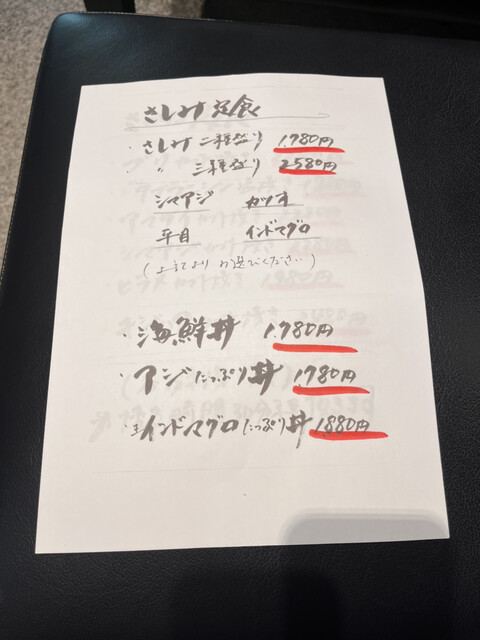 さしみ定食
・さしみ二種盛り 1,780円
・ 〃 三種盛り 2,580円
シマアジ カツオ
平目 インドマグロ
(上記よりお選びください)
・海鮮丼 1,780円
・アジたっぷり丼 1,780円
・生インドマグロたっぷり丼 1,880円